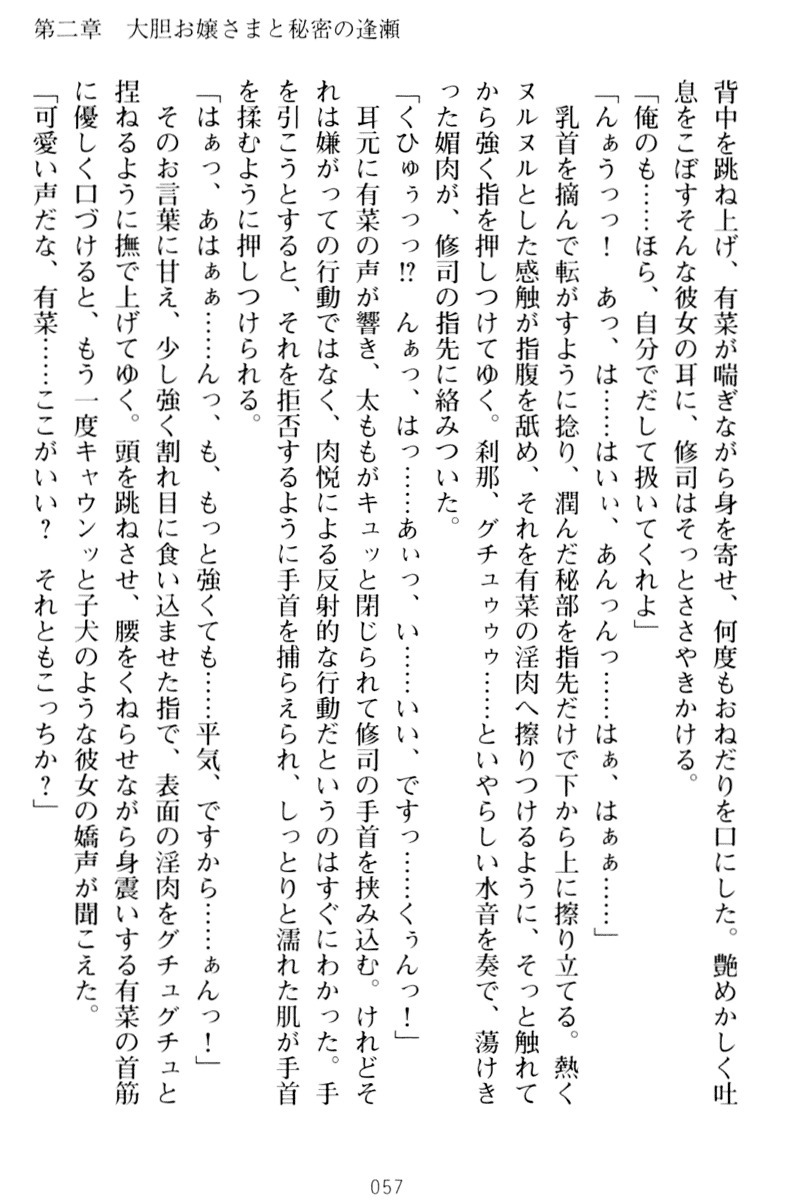 第二章　大胆お嬢さまと秘密の逢瀬
背中を跳ね上げ、有菜が喘ぎながら身を寄せ、何度もおねだりを口にした。艶めかしく吐
息をこぼすそんな彼女の耳に、修司はそっとささやきかける。
「俺のも……ほら、自分でだして扱いてくれよ」
「んぁうっっ！　あっ、は……はいぃ、あんっんっ……はぁ、はぁぁ……」
　乳首を摘んで転がすように捻り、潤んだ秘部を指先だけで下から上に擦り立てる。熱く
ヌルヌルとした感触が指腹を舐め、それを有菜の淫肉へ擦りつけるように、そっと触れて
から強く指を押しつけてゆく。刹那、グチュゥゥゥ……といやらしい水音を奏で、蕩けき
った媚肉が、修司の指先に絡みついた。
「くひゅぅっっ⁉　んぁっ、はっ……あぃっ、い……いい、ですっ……くぅんっ！」
　耳元に有菜の声が響き、太ももがキュッと閉じられて修司の手首を挟み込む。けれどそ
れは嫌がっての行動ではなく、肉悦による反射的な行動だというのはすぐにわかった。手
を引こうとすると、それを拒否するように手首を捕らえられ、しっとりと濡れた肌が手首
を揉むように押しつけられる。
「はぁっ、あはぁぁ……んっ、も、もっと強くても……平気、ですから……ぁんっ！」
　そのお言葉に甘え、少し強く割れ目に食い込ませた指で、表面の淫肉をグチュグチュと
捏ねるように撫で上げてゆく。頭を跳ねさせ、腰をくねらせながら身震いする有菜の首筋
に優しく口づけると、もう一度キャウンッと子犬のような彼女の嬌声が聞こえた。
「可愛い声だな、有菜……ここがいい？　それともこっちか？」
057